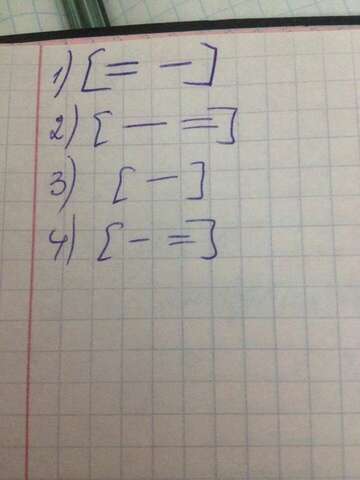 1) [= —]
2) [— =]
3) [—]
4) [— =]